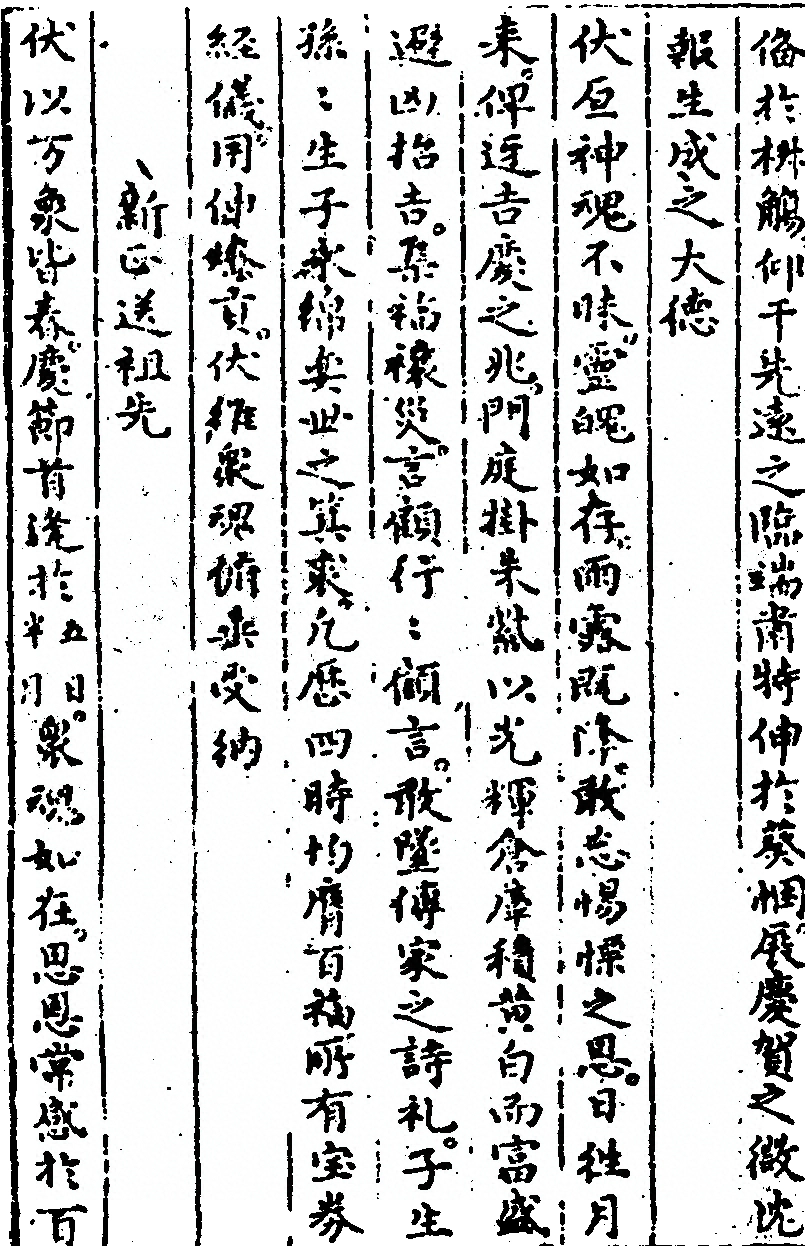 俻於栟觴仰干先遠之臨端肅特伸於葵悃展慶賀之微忱
報生成之大德
伏亘神魂不昧靈魄如存雨露既降敢忘惕慄之恩日往月
来俾迓吉慶之兆門庭掛朱紫以光輝倉庫積黄白而富盛
避凶招吉集福禳災言顧行〻顧言敢墜傳家之詩礼子生
孫〻生子永綿奕世之箕求凡歷四時均膺百福所有宝券
経儀用伸燎貢伏维衆魂俯垂受納
新正送祖先
伏以万象皆春慶節首逢於五日半月衆魂如在思恩常感於百